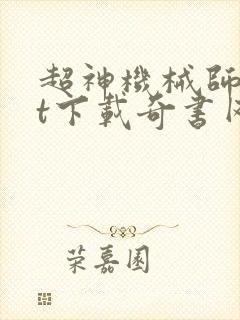 超神機械師
t下載奇書
荣嘉園